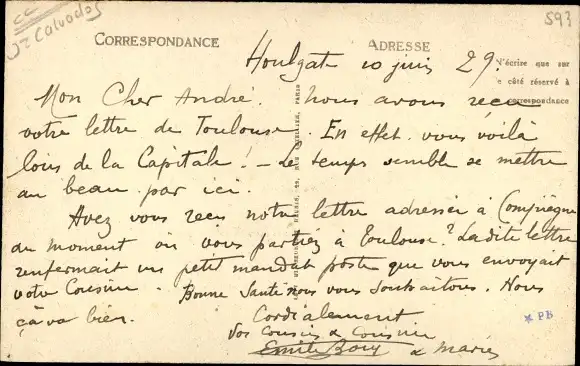 cc
Jz Calvados
593
CORRESPONDANCE
ADRESSE
N'écrire que sur
e côté réservé à
correspondance
Houlgate 10 juin 29.
Mon Cher André. Nous avons reçu
votre lettre de Toulouse. En effet vous voilà
loin de la Capitale. - Le temps semble se mettre
au beau par ici.
Avez vous reçu notre lettre adressée à Compiègne
du moment où vous partiez à Toulouse? La dite lettre
renfermait un petit mandat poste que vous envoyait
votre Cousin. Bonne Santé nous vous souhaitons. Nous
ça va bien.
Cordialement
Vos Cousins & Cousine
Emile & Marie
* PB